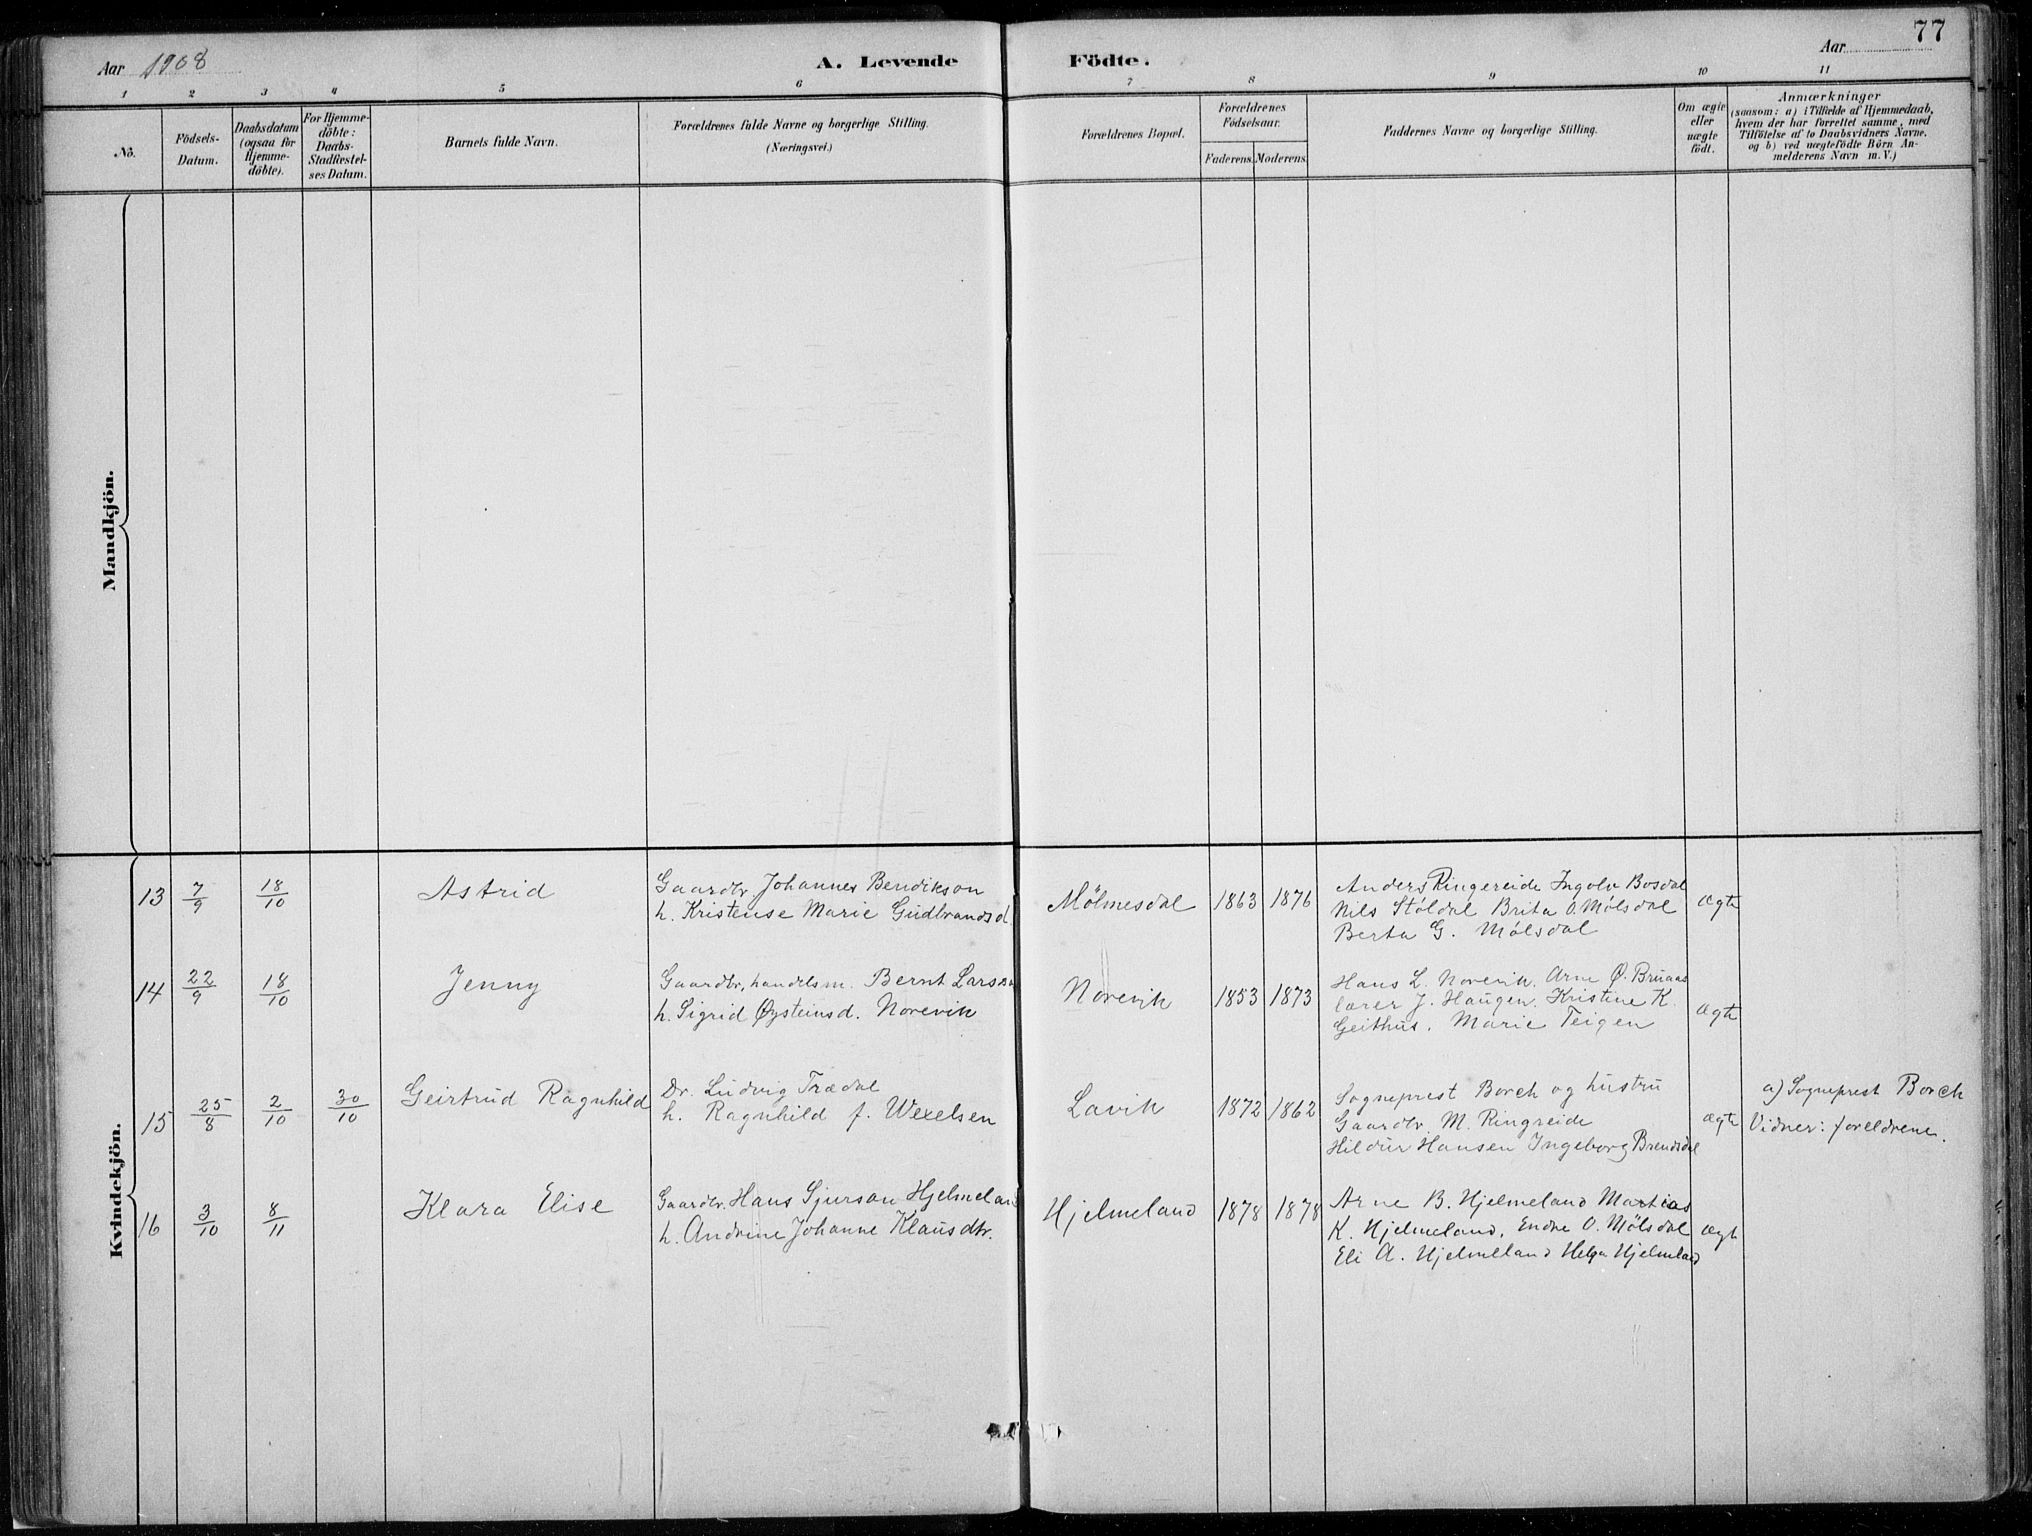 Aar 1908
A. Levende Födte.
Aar 77
1 2 3 4 5 6 7 8 9 10 11
No.
Födsels-Datum.
Daabsdatum (ogsaa for Hjemme-döbte).
For Hjemme-döbte: Daabs-Stadfæstel-ses Datum.
Barnets fulde Navn.
Forældrenes fulde Navne og borgerlige Stilling.
(Næringsvei.)
Forældrenes Bopæl.
Forældrenes Födselsaar.
Faderens. Moderens.
Faddernes Navne og borgerlige Stilling.
Om ægte eller uægte födt.
Anmærkninger
(saasom: a) i Tilfælde af Hjemmedaab,
hvem der har forrettet samme, med
Tilföielse af to Daabsvidners Navne.
og b) ved uægtefödte Börn An-
melderens Navn m. V.)
Mandkjön.
Kvindekjön.
13 7/9 18/10 Astrid
Gaardbr. Johannes Bendikson
h. Kristense Marie Gudbrandsd.
Mölmesdal 1863 1876
Anders Ringereide Ingolv Bosdal
Nils Stöldal Brita O. Mölsdal
Berta G. Mölsdal
ægte
14 22/9 18/10 Jenny
Gaardbr, handelsm. Bernt Larsson
h. Sigrid Øysteinsd. Norevik
Norevik 1853 1873
Hans L. Norevik. Arne Ø. Bruaas
lærer J. Haugen. Kristine K.
Geithus. Marie Teigen
ægte
15 25/8 2/10 30/10 Geirtrud Ragnhild
Dr. Ludvig Trædal
h. Ragnhild f. Wexelsen
Lavik 1872 1862
Sogneprest Borch og hustru
Gaardbr. M. Ringreide
Hildur Hansen Ingeborg Brendsdal
ægte
a) Sogneprest Borch
Vidner: foreldrene.
16 3/10 8/11 Klara Elise
Gaardbr. Hans Sjurson Hjelmeland
h. Andrine Johanne Klausdtr.
Hjelmeland 1878 1878
Arne B. Hjelmeland Martias
K. Hjelmeland. Endre O. Mölsdal
Eli A. Hjelmeland Helga Hjelmeland
ægt